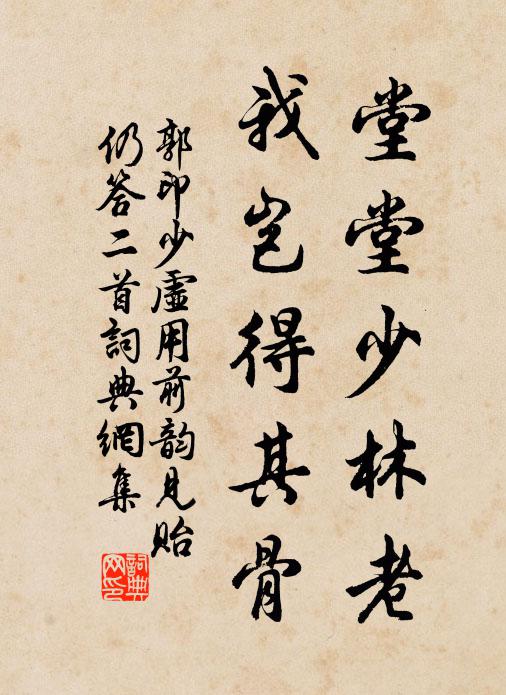 堂堂少林老
我岂得其骨
郭印少虚用前韵见贻
仍答二首词典網集
詞典网印